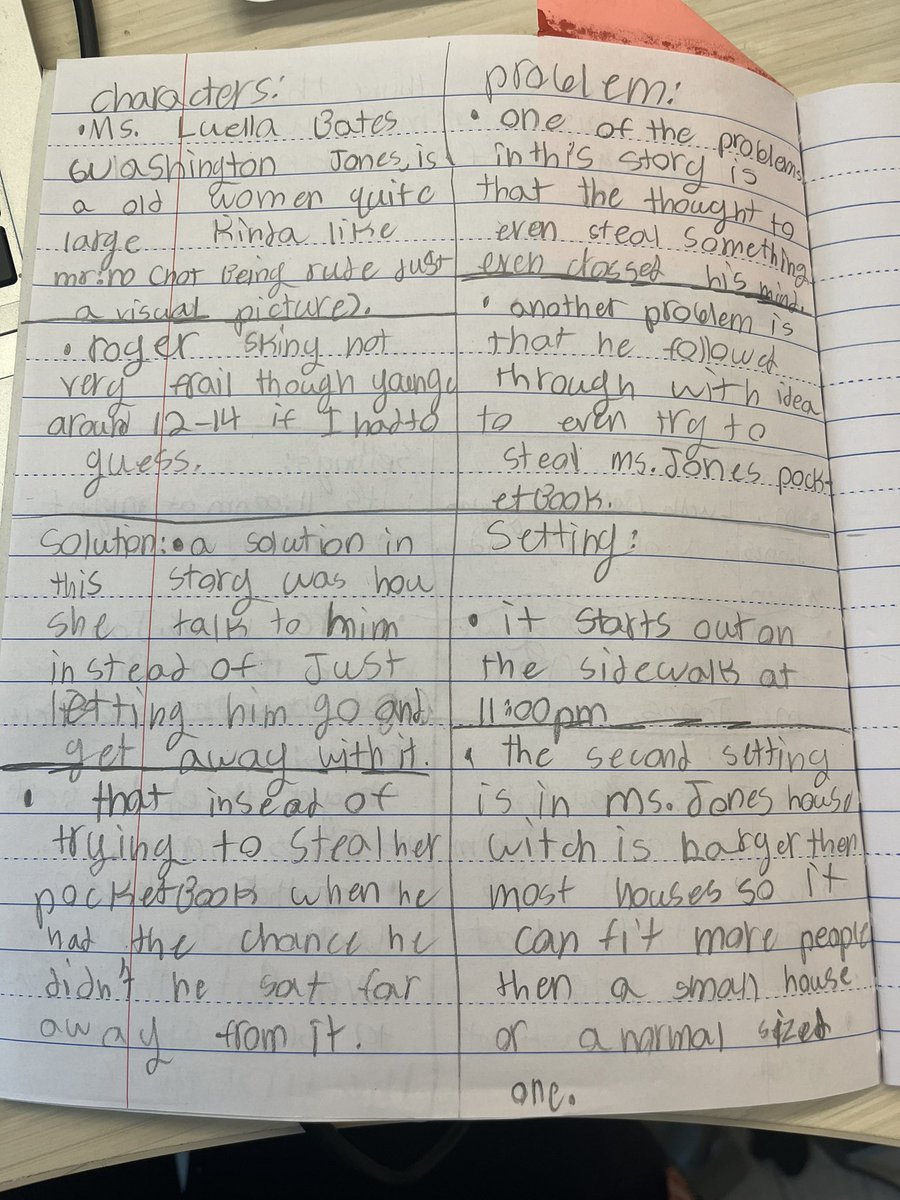 characters:
• Ms. Luella Bates
Washington Jones, is
a old women quite
large kinda like
mr:mo Cnot Being rude Just
a visual picture).
• roger skiny not
very frail though young
around 12-14 if I had to
guess.
problem:
• one of the problems
in this story is
that the thought to
even steal something
even crossed his mind.
• another problem is
that he followd
through with idea
to even try to
steal ms. Jones pock
etBook.
Solution: • a solution in
this story was how
she talk to him
instead of Just
letting him go and
get away with it.
• that insead of
trying to steal her
pocketBook when he
had the chance he
didn't he sat far
away from it.
Setting:
• it starts out on
the sidewalk at
11:00pm
• the second setting
is in ms. Jones house
witch is barger then
most houses so it
can fit more people
then a small house
or a normal sized
one.